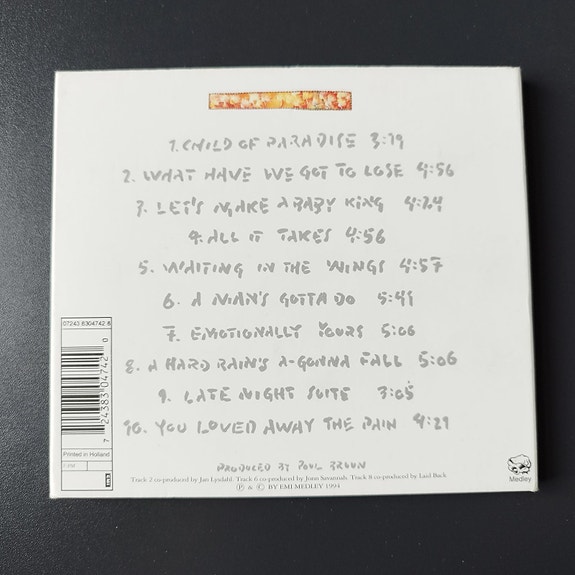 1. CHILD OF PARADISE 3:19
2. WHAT HAVE WE GOT TO LOSE 4:56
3. LET'S MAKE A BABY KING 4:24
4. ALL IT TAKES 4:56
5. WAITING IN THE WINGS 4:57
6. A MAN'S GOTTA DO 5:41
7. EMOTIONALLY YOURS 5:06
8. A HARD RAIN'S A-GONNA FALL 5:06
9. LATE NIGHT SUITE 3:05
10. YOU LOVED AWAY THE PAIN 4:29
PRODUCED BY POUL BRUUN
Track 2 co-produced by Jan Lysdahl. Track 6 co-produced by Jonn Savannah. Track 8 co-produced by Laid Back
℗ & © BY EMI MEDLEY 1994
07243 8304742 6
7 24383 04742 0
Printed in Holland
Medley